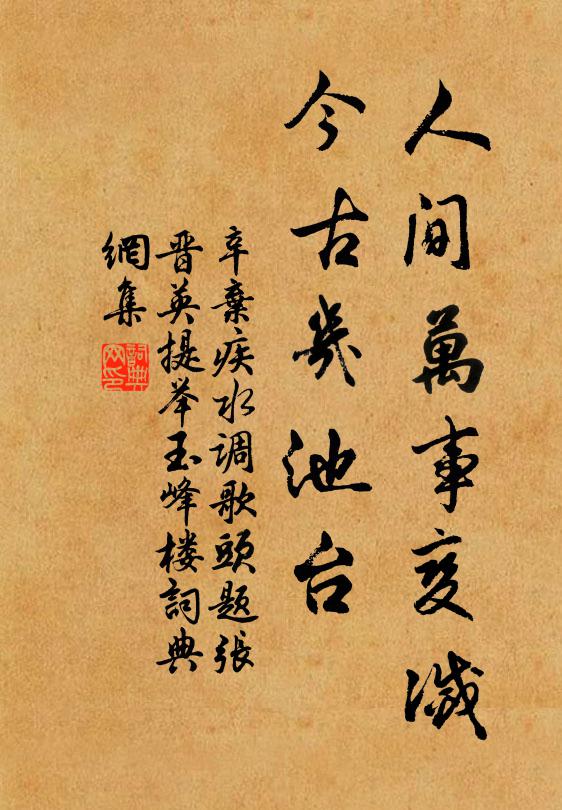 人間萬事変滅
今古幾池台
辛棄疾水調歌頭題張
晋英提举玉峰楼詞典
網集
詞典网印